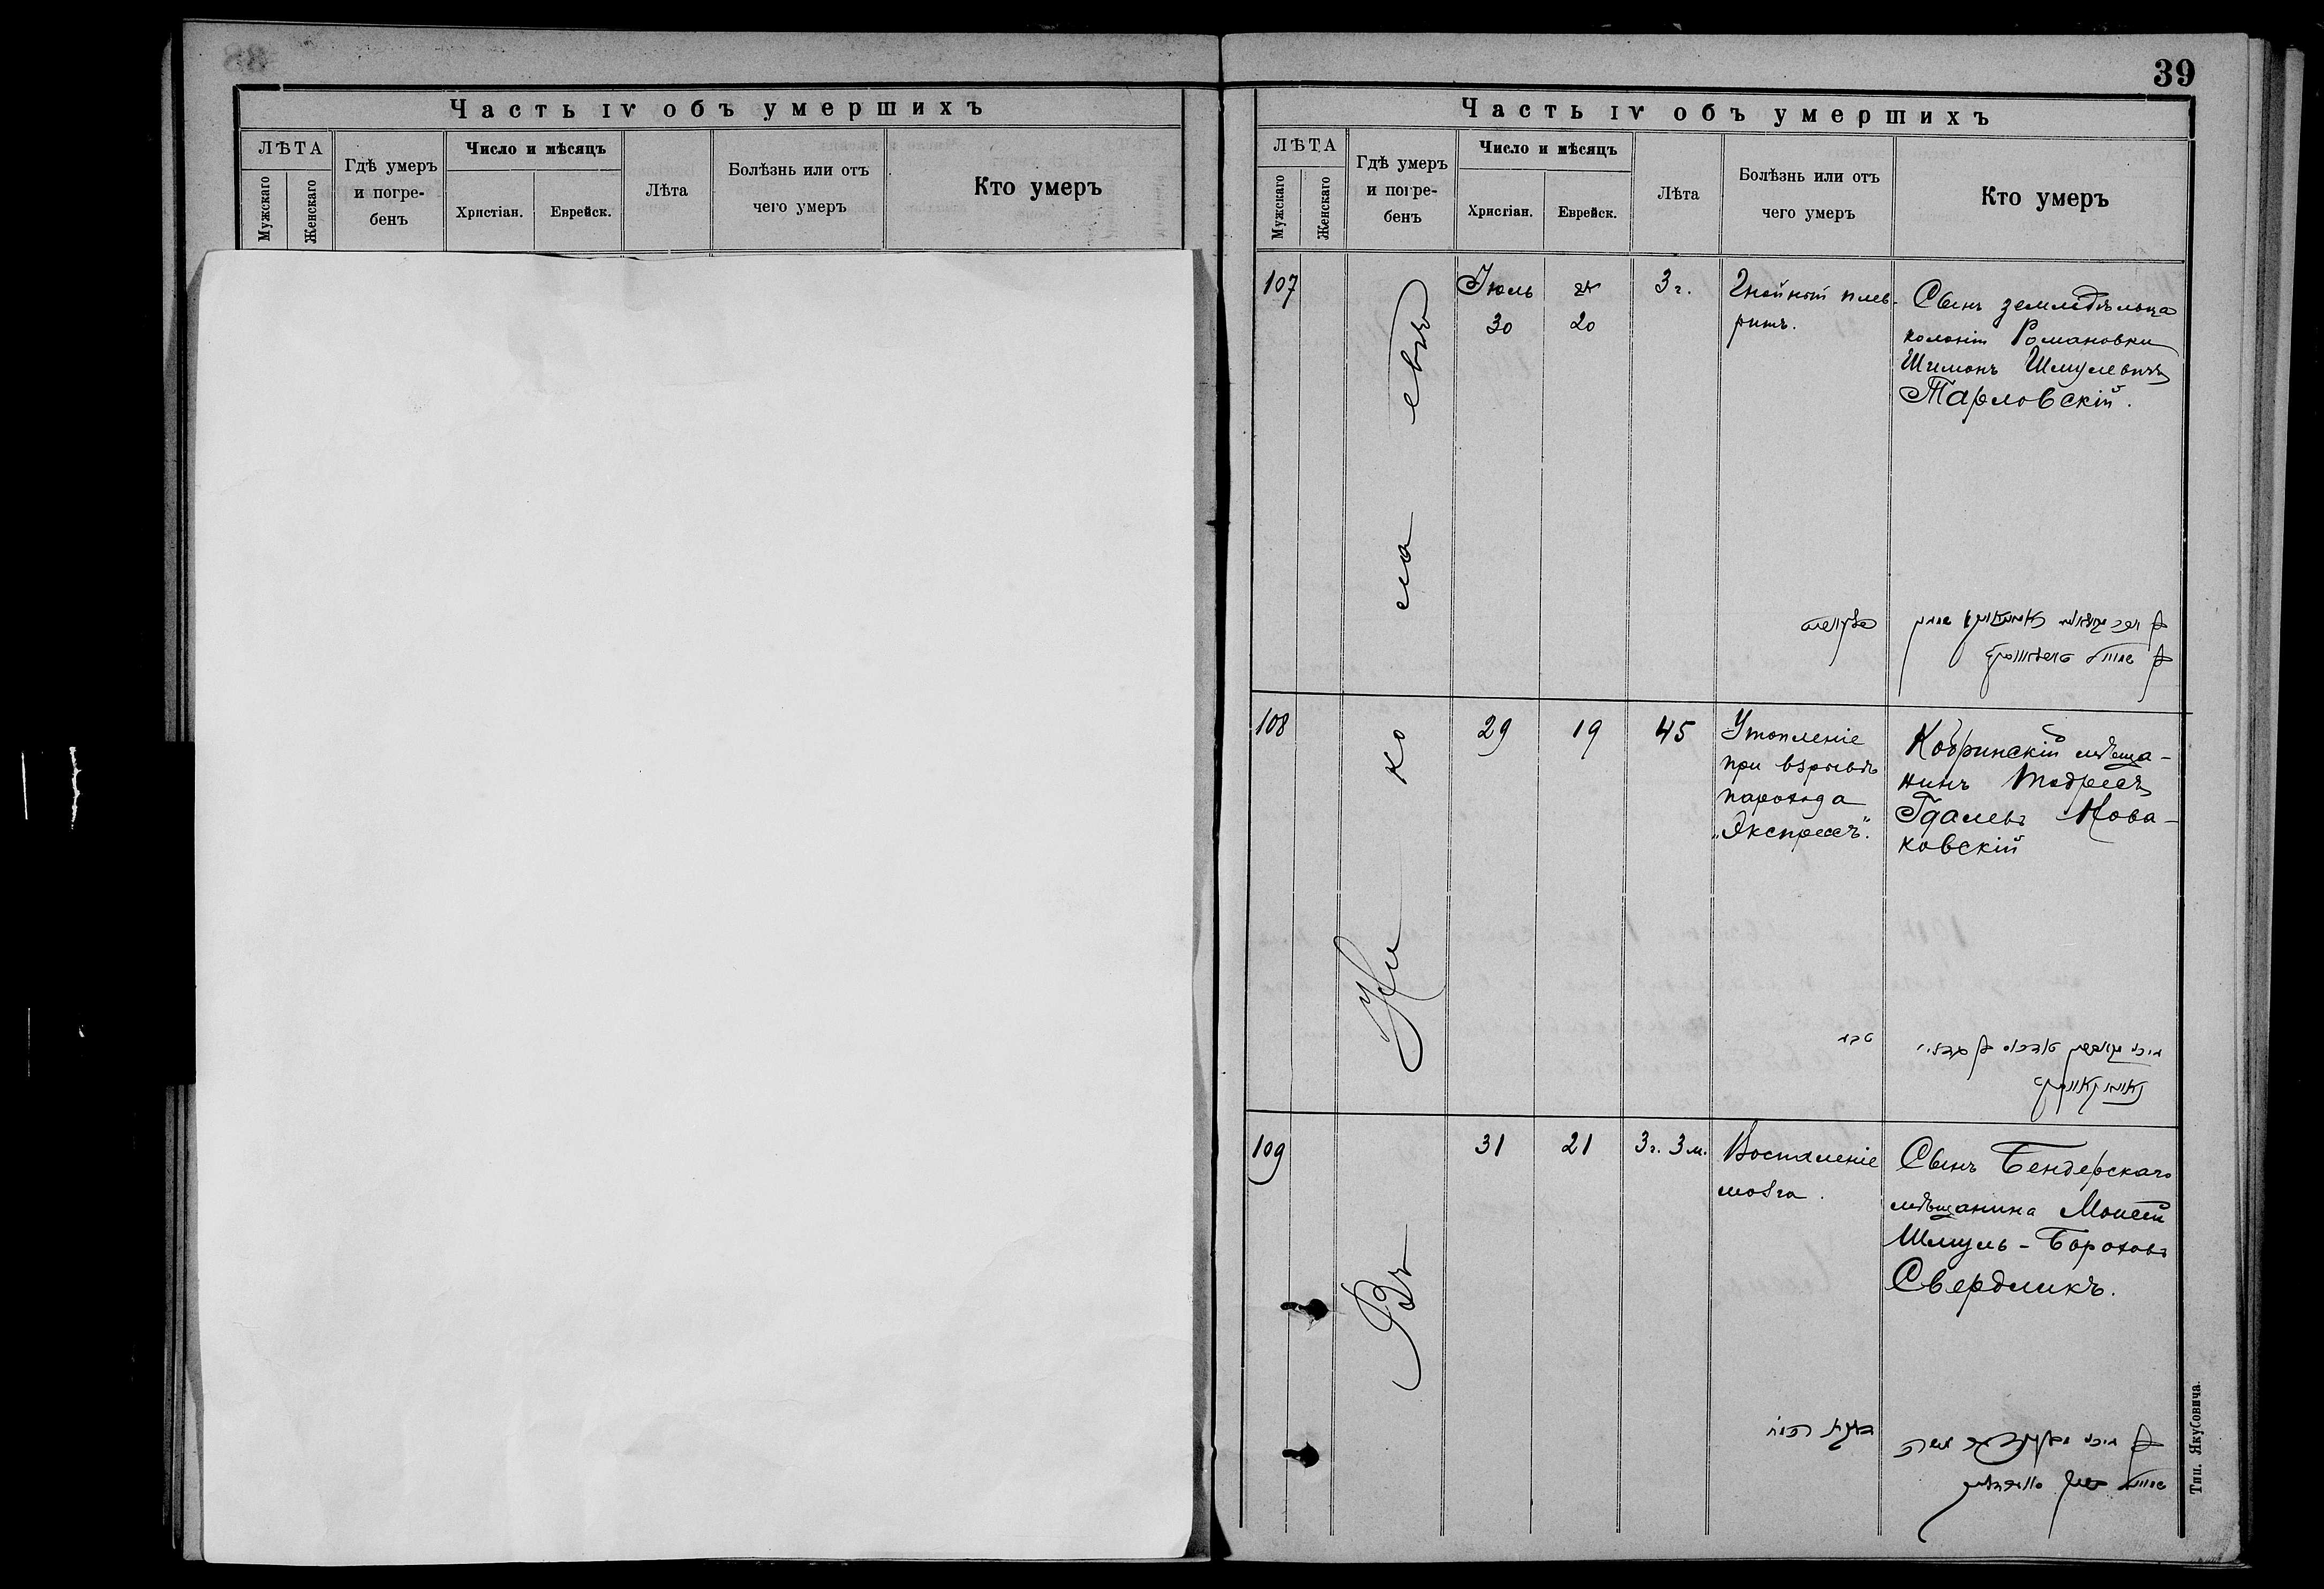 Часть IV объ умершихъ
ЛѢТА
Мужскаго
Женскаго
Гдѣ умеръ
и погре-
бенъ
Число и мѣсяцъ
Христіан.
Еврейск.
Лѣта
Болѣзнь или отъ
чего умеръ
Кто умеръ
39
Часть IV объ умершихъ
ЛѢТА
Мужскаго
Женскаго
Гдѣ умеръ
и погре-
бенъ
Число и мѣсяцъ
Христіан.
Еврейск.
Лѣта
Болѣзнь или отъ
чего умеръ
Кто умеръ
Въ Николаевѣ
107
Іюль
30
אב
20
3 г.
Гнойный плев-
ритъ.
Сынъ земледѣльца
колоніи Романовки
Шимонъ Шмулевичъ
Тарловскій.
108
29
19
45
Утопленіе
при взрывѣ
парохода
„Экспрессъ".
Кобринскій мѣща-
нинъ Тодресъ
Гдалевъ Нова-
ковскій
109
31
21
3 г. 3 м.
Воспаленіе
мозга.
Сынъ Бендерскаго
мѣщанина Моисей
Шмуль-Бороховъ
Свердликъ.
Тип. Якубовича.